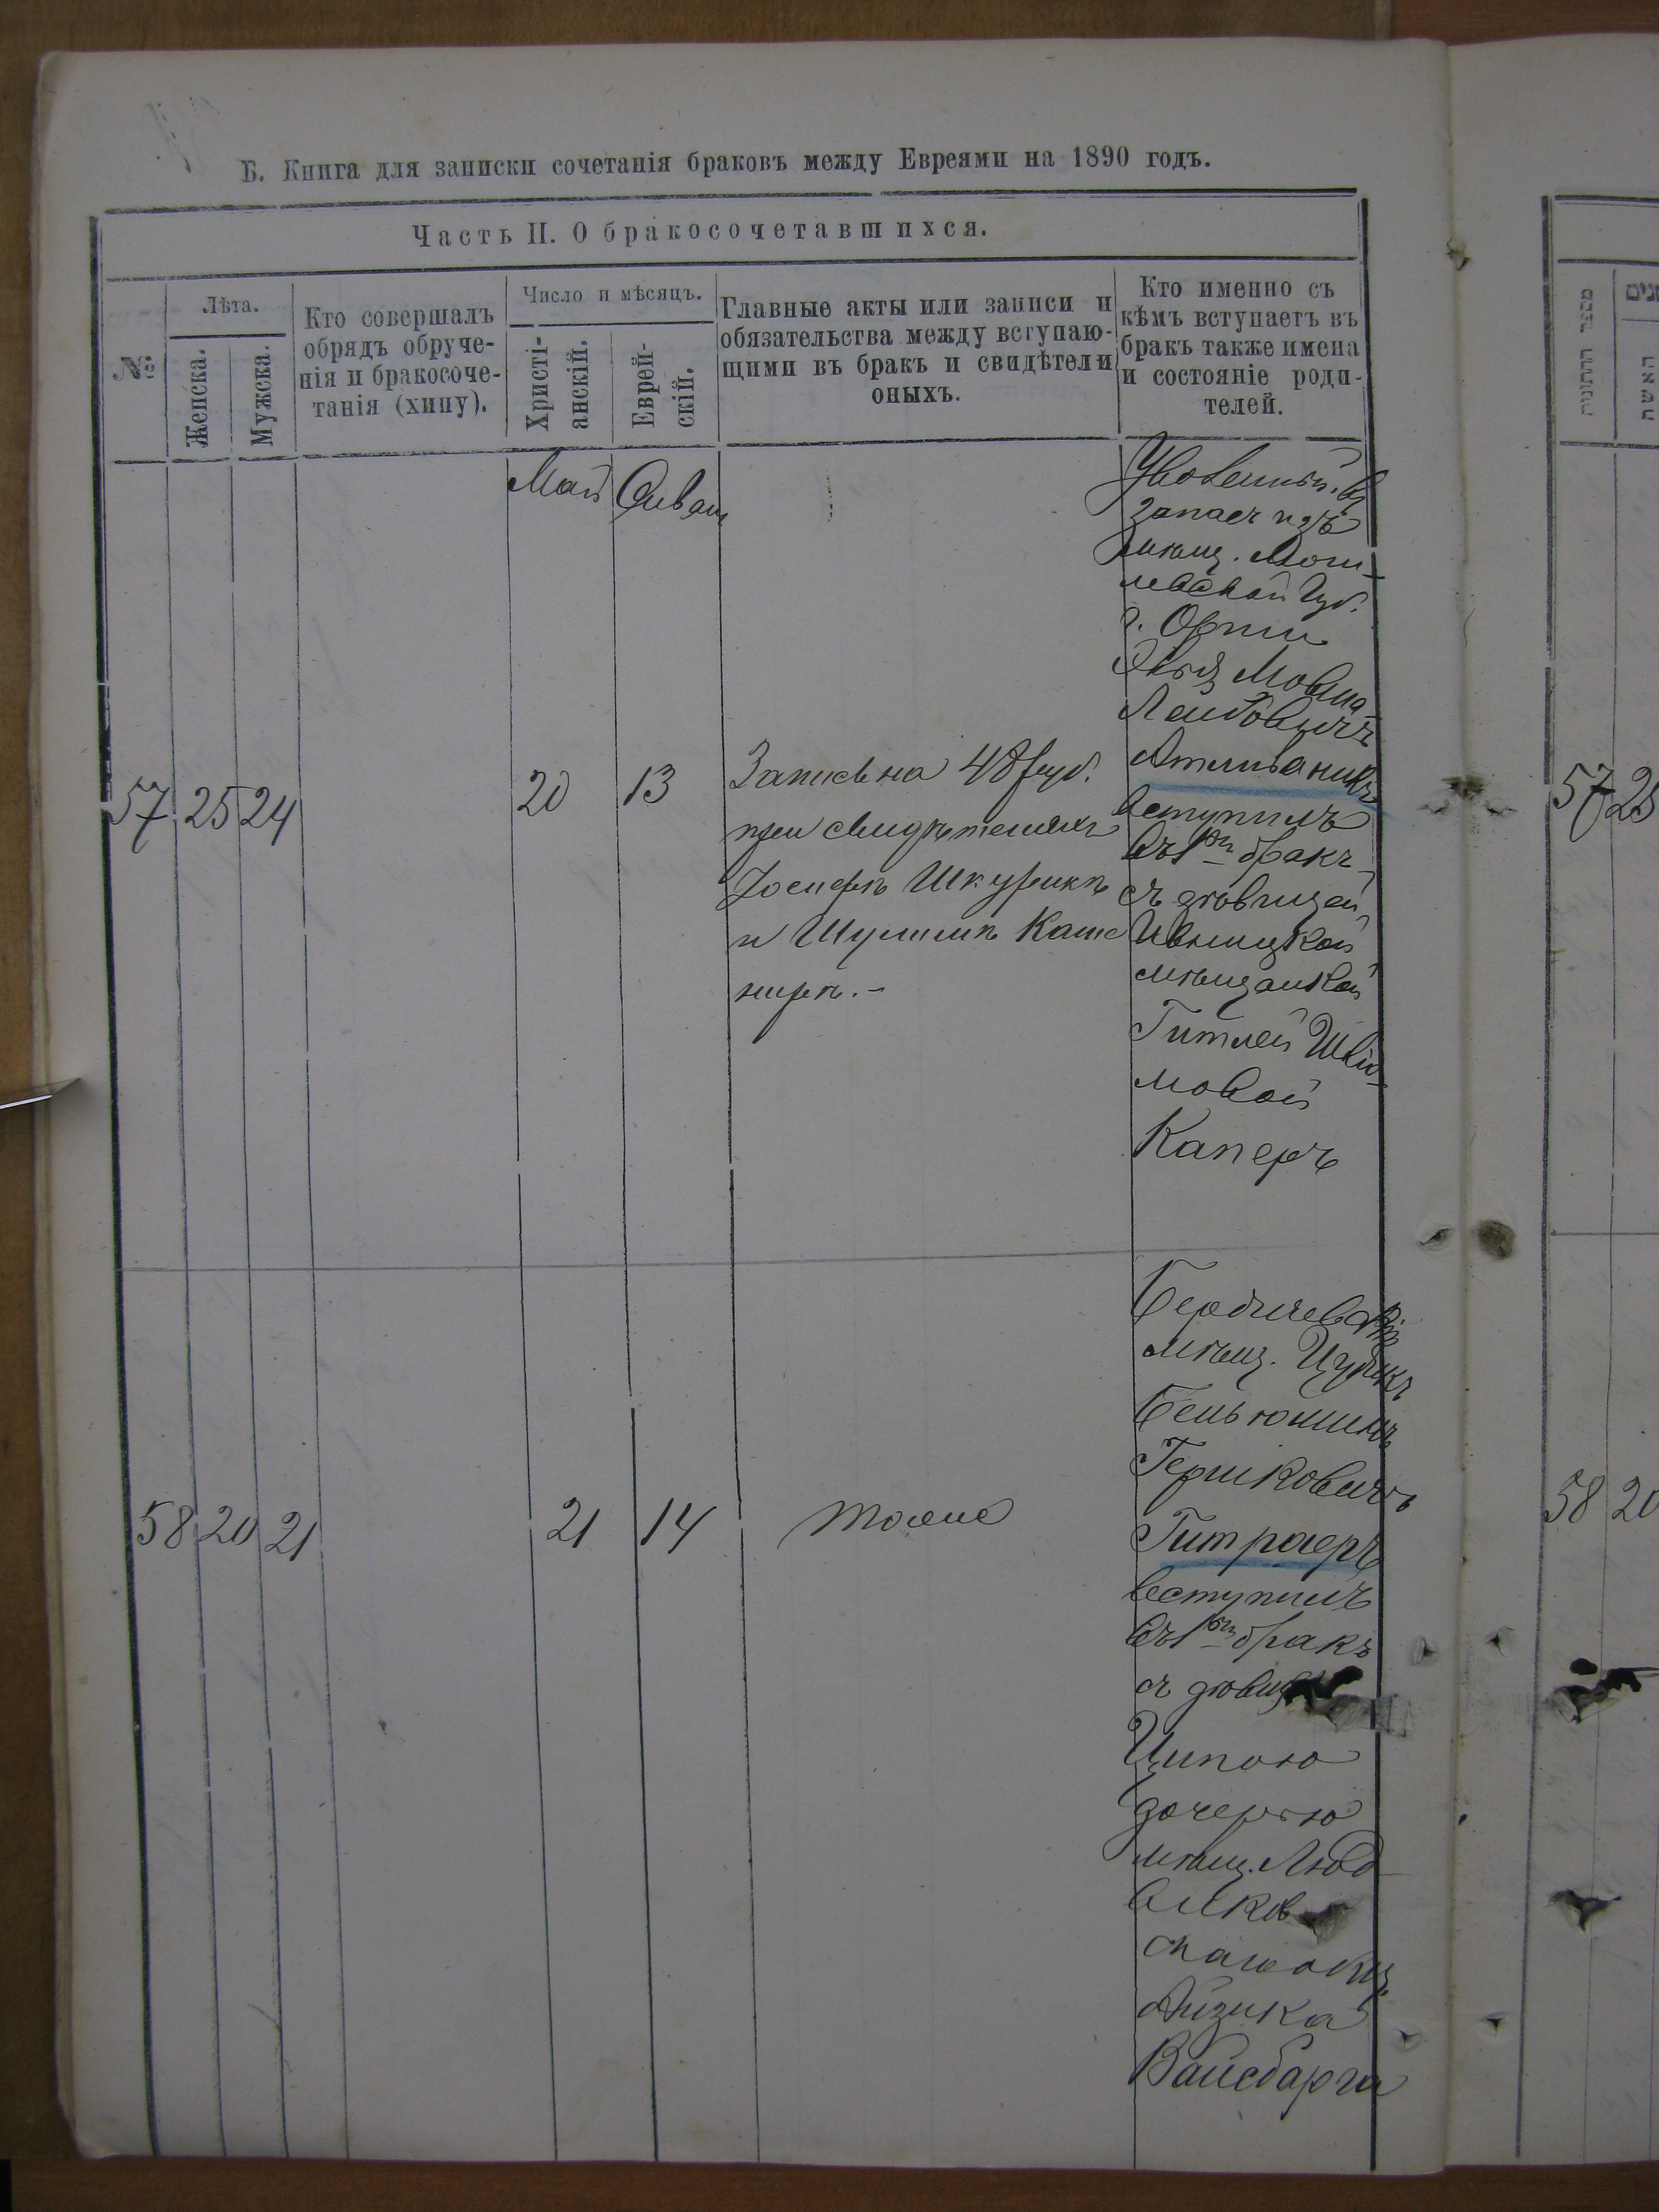 Б. Книга для записки сочетанія браковъ между Евреями на 1890 годъ.
Часть II. О бракосочетавшихся.
№
Лѣта.
Женска.
Мужска.
Кто совершалъ
обрядъ обруче-
нія и бракосоче-
танія (хипу).
Число и мѣсяцъ.
Христі-
анскій.
Еврей-
скій.
Главные акты или записи и
обязательства между вступаю-
щими въ бракъ и свидѣтели
оныхъ.
Кто именно съ
кѣмъ вступаетъ въ
бракъ также имена
и состояніе роди-
телей.
Май Сиван
57 25 24
20 13
Запись на 48 руб.
при свидѣтеляхъ
Іосифѣ Шкурикѣ
и Шулимѣ Каш
нирѣ.-
Уволенный въ
запасъ изъ
мѣщ. Моги-
левской Губ.
г. Орши
Мовша-
Лейбовичъ
вступилъ
въ 1ый бракъ
съ дѣвицей
Ивницкой
мѣщанкой
Гитлей Шлио-
мовой
Каперъ
58 20 21
21 14
тоже
Бердичевскій
мѣщ. Цудикъ
Беньюминъ
Гершковичъ
Гитраеръ
вступилъ
въ 1ый бракъ
съ
Ципою
дочерью
мѣщ. Люб
Айзика
Вайсбарга
מספר החתונות
שנים
האשה
57 25
58 20